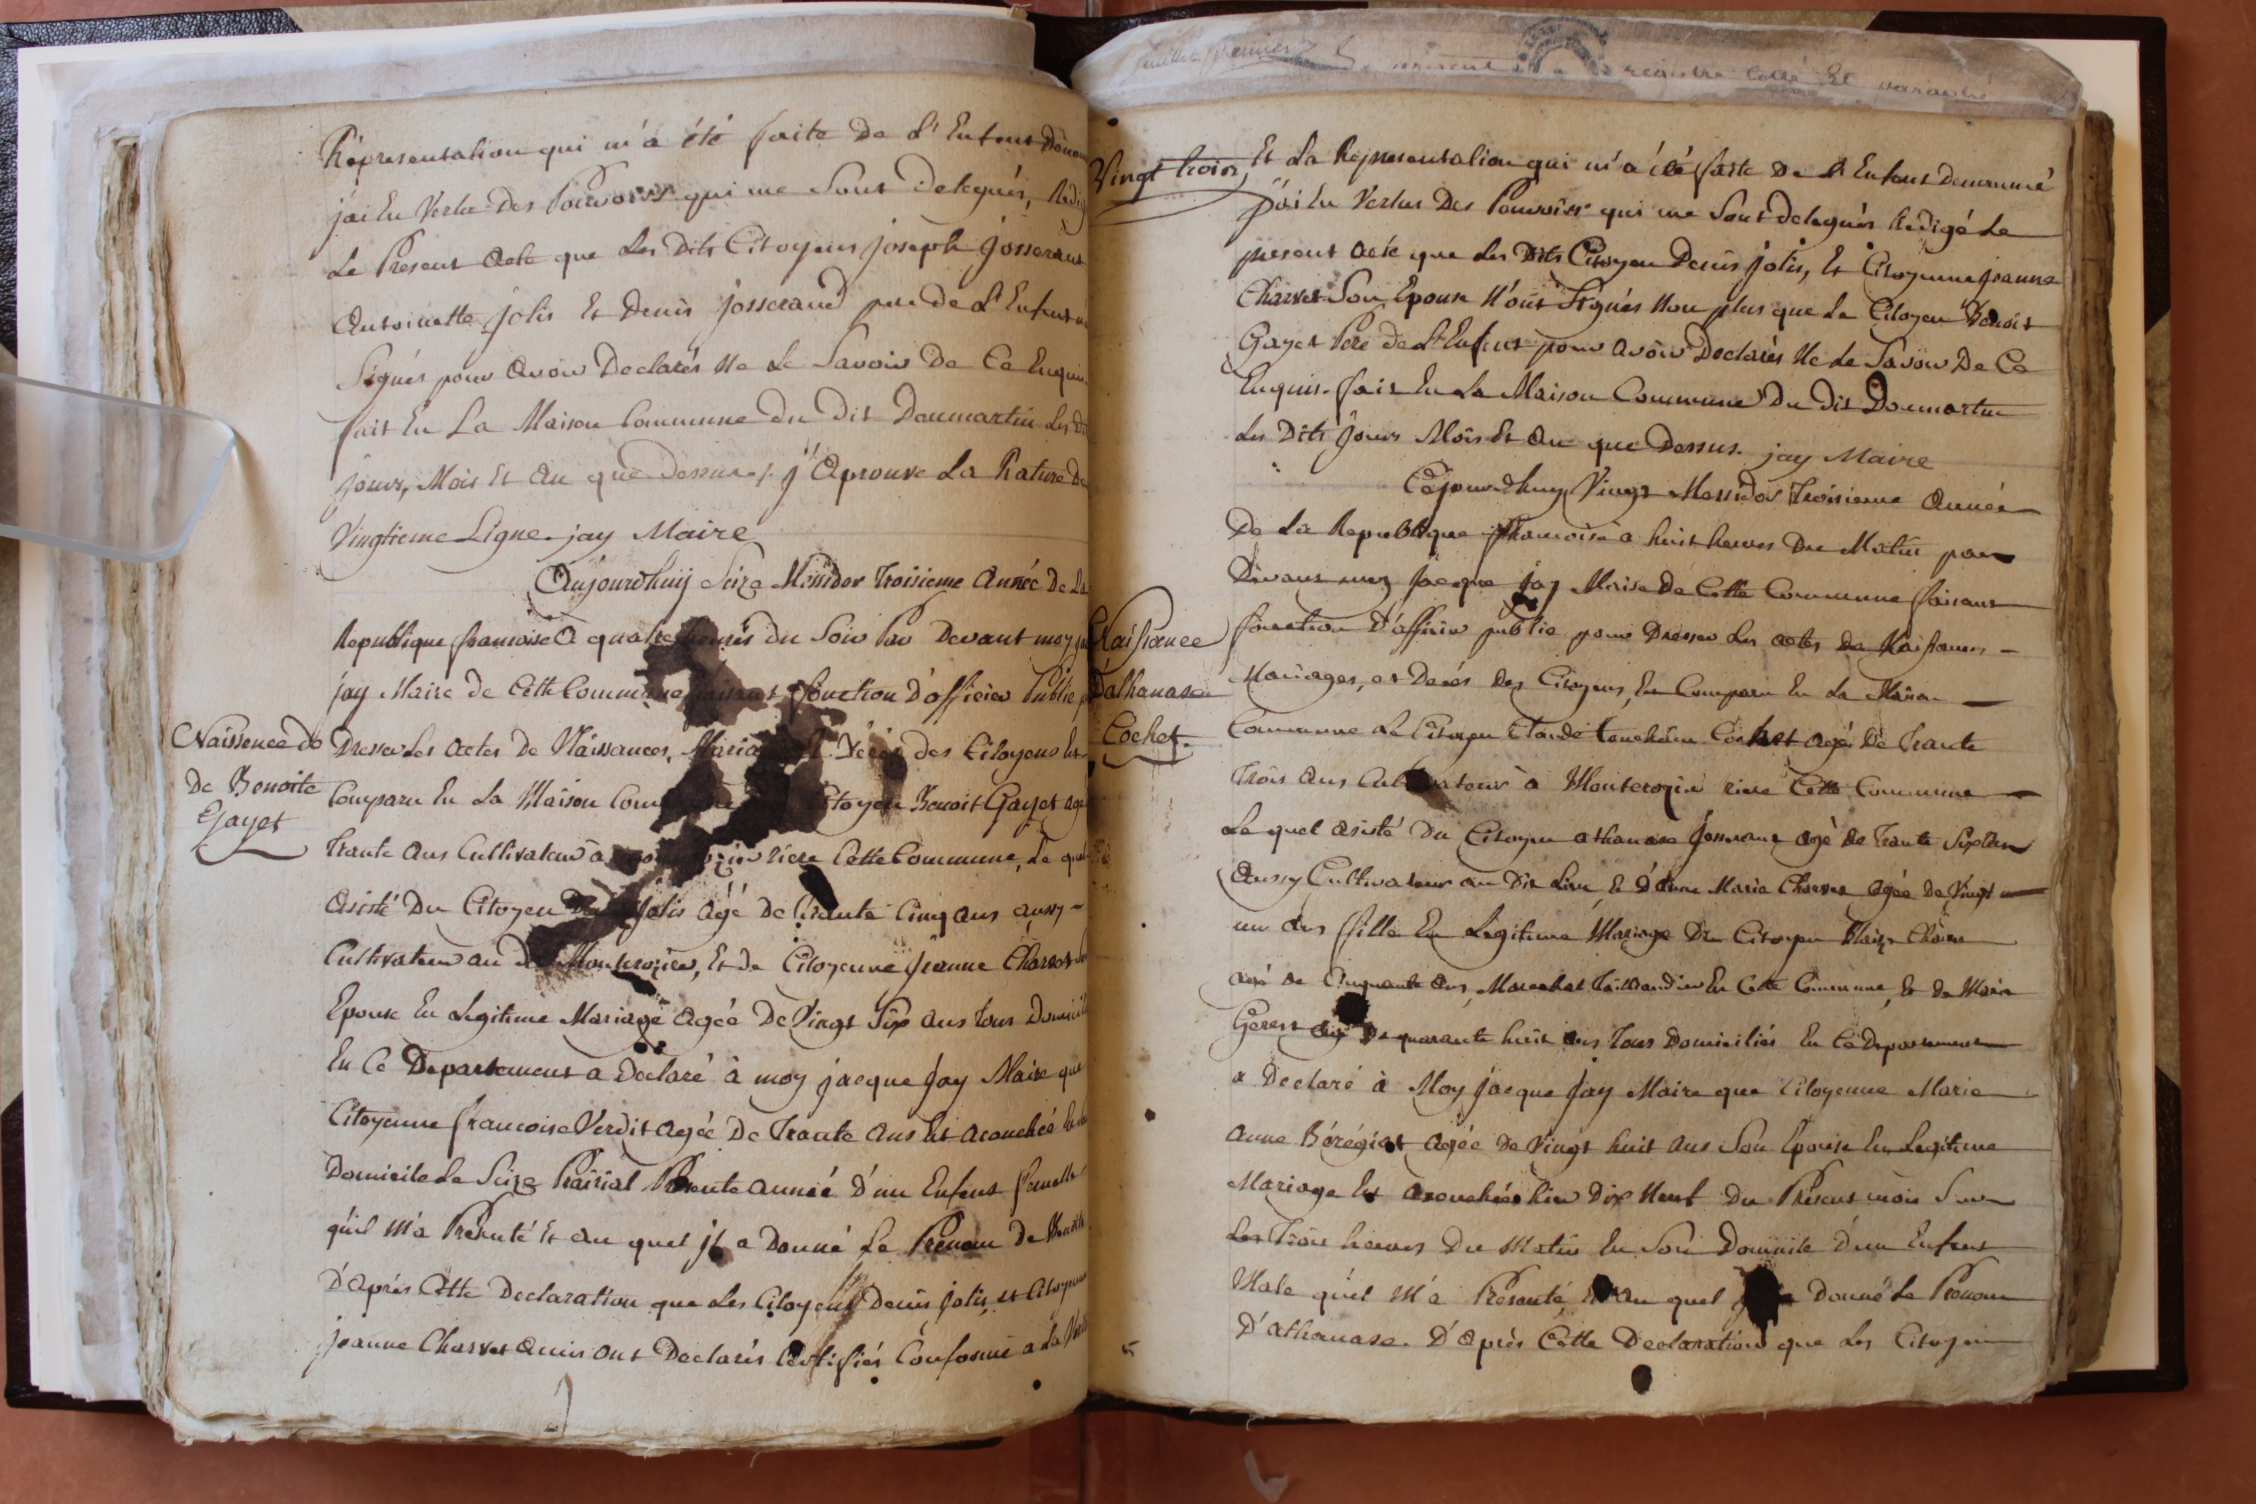 Répresentation qui m'a été faite De L' Enfent Denom
j'ai En Vertu Des Pouvoirs qui me Sont Delegués, Redig
Le Present acte que Les Dits Citoyens joseph josserant
Antoinette jolis Et Denis josserand pere De L' Enfent
Signés pour avoir Declarés Ne Le Savoir De Ce Enquis
fait En La Maison Commune Du Dit Dommartin Les D
jours, Mois Et an que Dessus j'aprouve La Rature De
Vingtieme Ligne. jay Maire
Aujourdhuij Seize Messidor Troisieme Année De La
Republique francoise a quatre heures du Soir Par Devant moy
jay Maire de Cette Commune faisant fonction D'officier Public
Naissence do
De Benoite
Gayet
Dresser Les actes De Naissances, Maria Décés des Citoyens Est
Comparu En La Maison Com Citoyen Benoit Gayet agé
Trante ans Cultivateur à riere Cette Commune, Le quel
asisté Du Citoyen jolis agé De trante Cinq ans aussy
Cultivateur au Monterozier, Et De Citoyenne jeanne Charvet
Epouse En Legitime Mariage agée De Vingt Six ans Tous Domicil
En Ce Departement a Declaré à moy jacque Jay Maire que
Citoyenne francoise Verdit agée De Trante ans Est acouchée
Domicile Le Seize Prairial Présente année D'un Enfent femelle
qu'il M'a Présenté Et au quel jl a Donné Le Prenom De Benoite
D'aprés Cette Declaration que Les Citoyens Denis jolis, et Citoyenne
jeanne Charvet amis ont Declarés Certifiés Conforme a La Verité
Vingt trois, Et La Représentation qui m'a été faite De L' Enfent Denommé
j'ai En Vertus Des Pouvoirs qui me Sont Delegués Redigé Le
present acte que Les Dits Citoyen Denis jolis, Et Citoyenne jeanne
Charvet Son Epouse N'ont Signés Non plus que Le Citoyen Benoit
Gayet Pere De L' Enfent pour avoir Declarés Ne Le Savoir De Ce
Enquis. fait En La Maison Commune Du Dit Dommartin
Les Dits jours Mois Et an que Dessus. jay Maire
Cejourdhuy Vingt Messidor Troisieme année
De La Republique francoise à huit heures Du Matin par
Devant moy Jacque jay Maire De Cette Commune faisant
Naissance
D'athanase
Cochet.
fonction D'officier public pour Dresser Les actes De Naissances
Mariages, et Decés Des Citoyens, Est Comparu En La Maison
Commune Le Citoyen Claude Cochet agé De Trante
Trois ans Cultivateur à Monterozier riere Cette Commune
Le quel asisté Du Citoyen athanase Josserant agé De Trante Sept ans
aussy Cultivateur au Dit Lieu, Et D'anne Marie Charvet agée De Vingt
un ans fille En Legitime Mariage Du Citoyen Blaize Charvet
agé De Cinquante ans, Marechal Taillandier En Cette Commune, Et De Marie
Gerest agé De quarante huit ans Tous Domiciliés En Ce Departement
a Declaré à Moy jacque Jay Maire que Citoyenne Marie
anne Bérégiat agée De Vingt huit ans Son Epouse En Legitime
Mariage Est acouchée hier Dix Neuf Du Présent mois Sur
Les Trois heures Du Matin En Son Domicile D'un Enfent
Male qu'il M'a Présenté, Et au quel Donné Le Prenom
D'athanase. D'aprés Cette Declaration que Les Citoyen